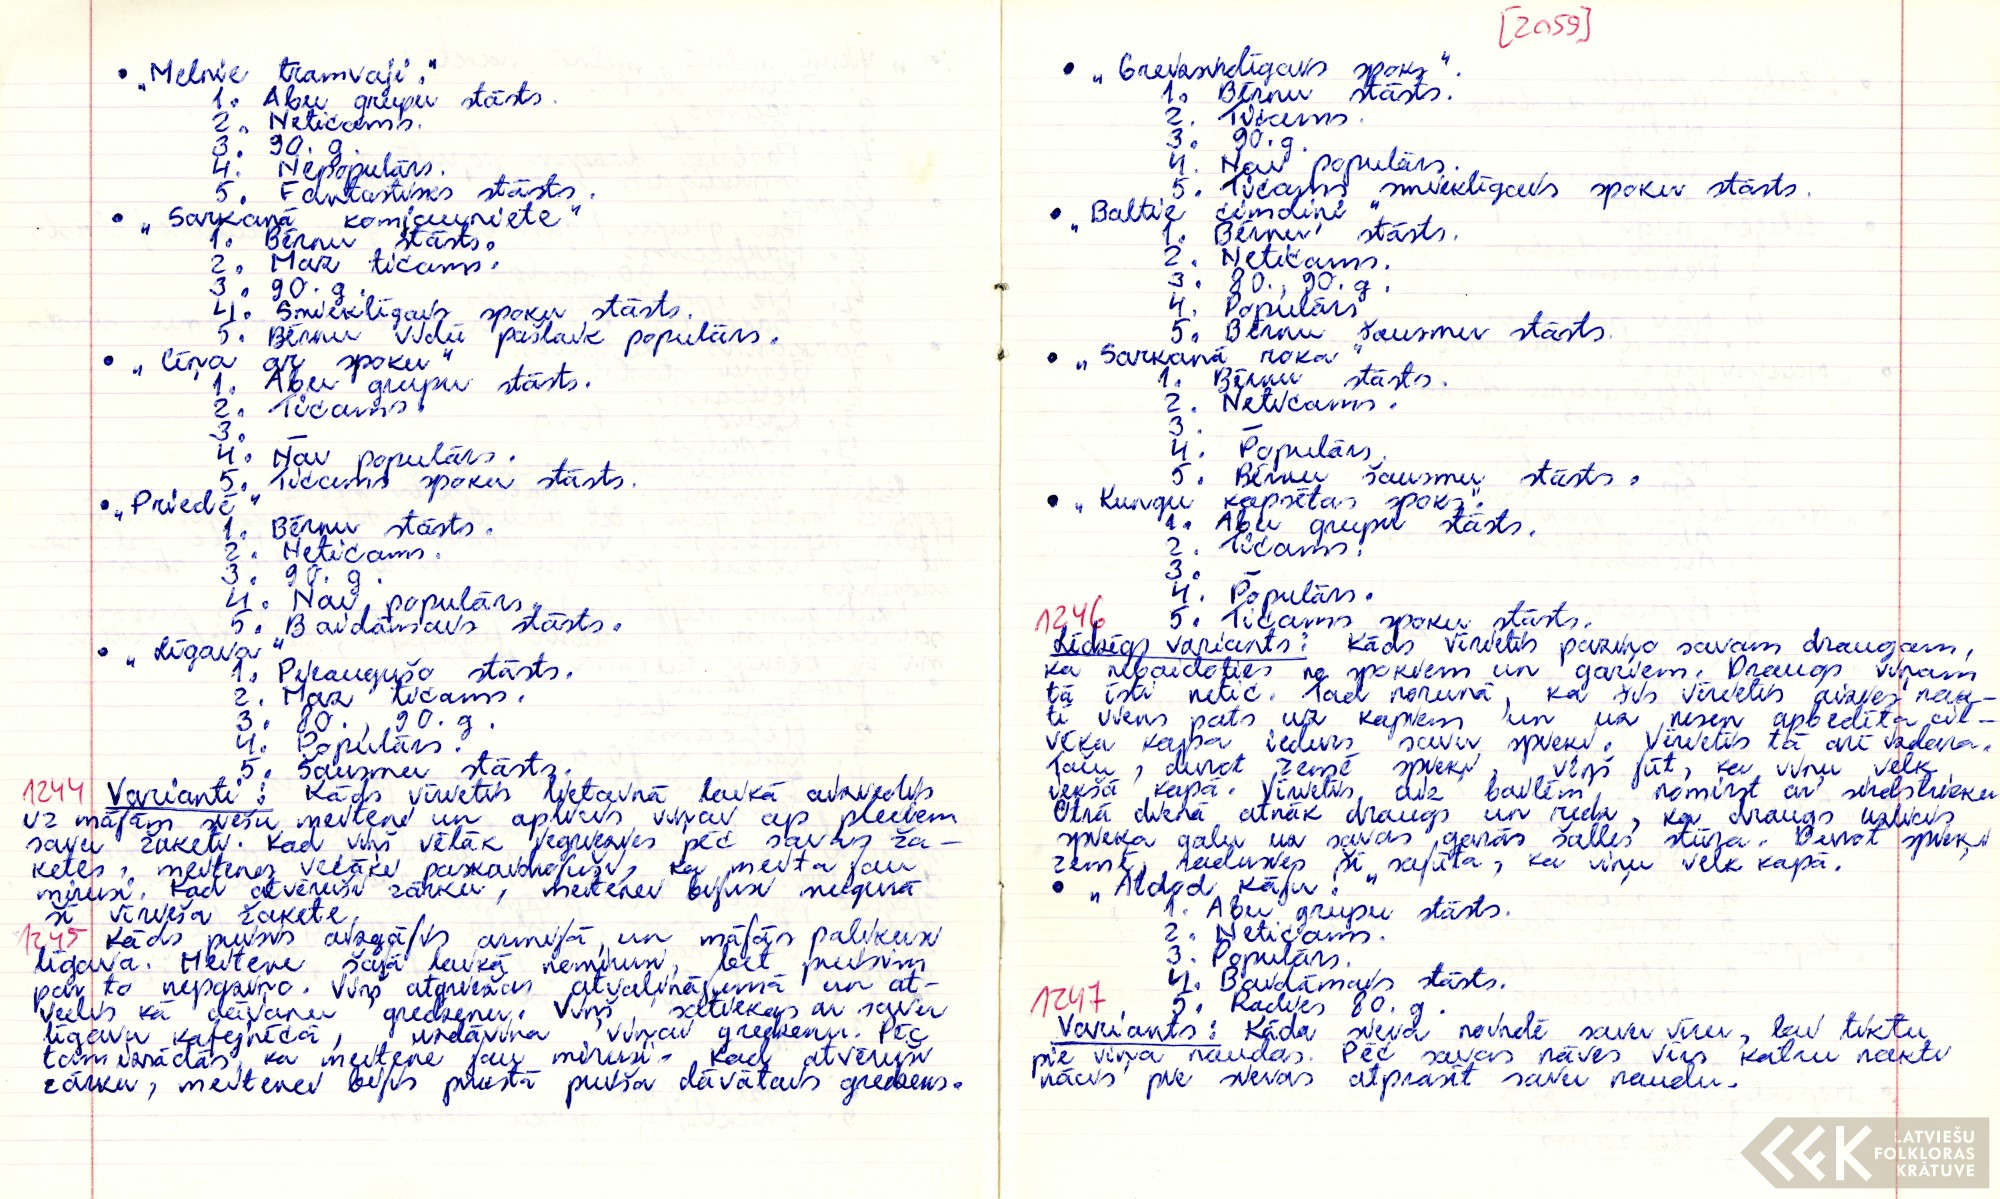 • „Melnie tramvaji."
1. Abu grupu stāsts.
2. Neticams.
3. 90. g.
4. Nepopulārs.
5. Fantastisks stāsts.
• „Sarkanā komjauniete"
1. Bērnu stāsts.
2. Maz ticams.
3. 90. g.
4. Smieklīgais spoku stāsts.
5. Bērnu vidū pašlaik populārs.
• „Cīņa ar spoku"
1. Abu grupu stāsts.
2. Ticams.
3. —
4. Nav populārs.
5. Ticams spoku stāsts.
• „Priedē"
1. Bērnu stāsts.
2. Neticams.
3. 90. g.
4. Nav populārs.
5. Baidāmais stāsts.
• „Līgava"
1. Pieaugušo stāsts.
2. Maz ticams.
3. 80., 90. g.
4. Populārs.
5. Šausmu stāsts.
1244 Varianti: Kāds vīrietis lietainā laikā aizvedis
uz mājām svešu meiteni un aplicis viņai ap pleciem
savu žaketi. Kad viņš vēlāk iegriezies pēc savas ža-
ketes, meitenes vecāki paskaidrojuši, ka meita jau
mirusi. Kad atvēruši zārku, meitenei bijusi mugurā
šī vīrieša žakete.
1245 Kāds puisis aizgājis armijā, un mājās palikusi
līgava. Meitene šajā laikā nomirusi, bet puisim
par to nepaziņo. Viņš atgriežas atvaļinājumā un at-
vedis kā dāvanu gredzenu. Viņš satiekas ar savu
līgavu kafejnīcā, uzdāvina viņai gredzenu. Pēc
tam izrādās, ka meitene jau mirusi. Kad atvēruši
zārku, meitenei bijis pirkstā puiša dāvātais gredzens.
[2059]
• „Greizsirdīgais spoks".
1. Bērnu stāsts.
2. Ticams.
3. 90. g.
4. Nav populārs.
5. Ticams smieklīgais spoku stāsts.
• „Baltie cimdiņi"
1. Bērnu stāsts.
2. Neticams.
3. 80., 90. g.
4. Populārs
5. Bērnu šausmu stāsts.
• „Sarkanā roka"
1. Bērnu stāsts.
2. Neticams.
3. —
4. Populārs.
5. Bērnu šausmu stāsts.
• „Kungu kapsētas spoks".
1. Abu grupu stāsts.
2. Ticams.
3. —
4. Populārs.
1246 5. Ticams spoku stāsts.
Līdzīgs variants: Kāds vīrietis paziņo savam draugam,
ka nebaidoties no spokiem un gariem. Draugs viņam
tā īsti netic. Tad norunā, ka šis vīrietis aizies nak-
tī viens pats uz kapiem un uz nesen apbedīta cil-
vēka kapa iedurs savu spieķi. Vīrietis tā arī izdara.
Taču, durot zemē spieķi, viņš jūt, ka viņu velk
iekšā kapā. Vīrietis aiz bailēm nomirst ar sirdstrieku
Otrā dienā atnāk draugs un redz, ka draugs uzlicis
spieķa galu uz savas garās šalles stūra. Durot spieķi
zemē, radusies šī sajūta, ka viņu velk kapā.
• „Atdod kāju!"
1. Abu grupu stāsts.
2. Neticams.
3. Populārs.
4. Baidāmais stāsts.
1247 5. Radies 80. g.
Variants: Kāda sieva noindē savu vīru, lai tiktu
pie viņa naudas. Pēc savas nāves vīrs katru nakti
nācis pie sievas atprasīt savu naudu.
LATVIEŠU
FOLKLORAS
KRĀTUVE